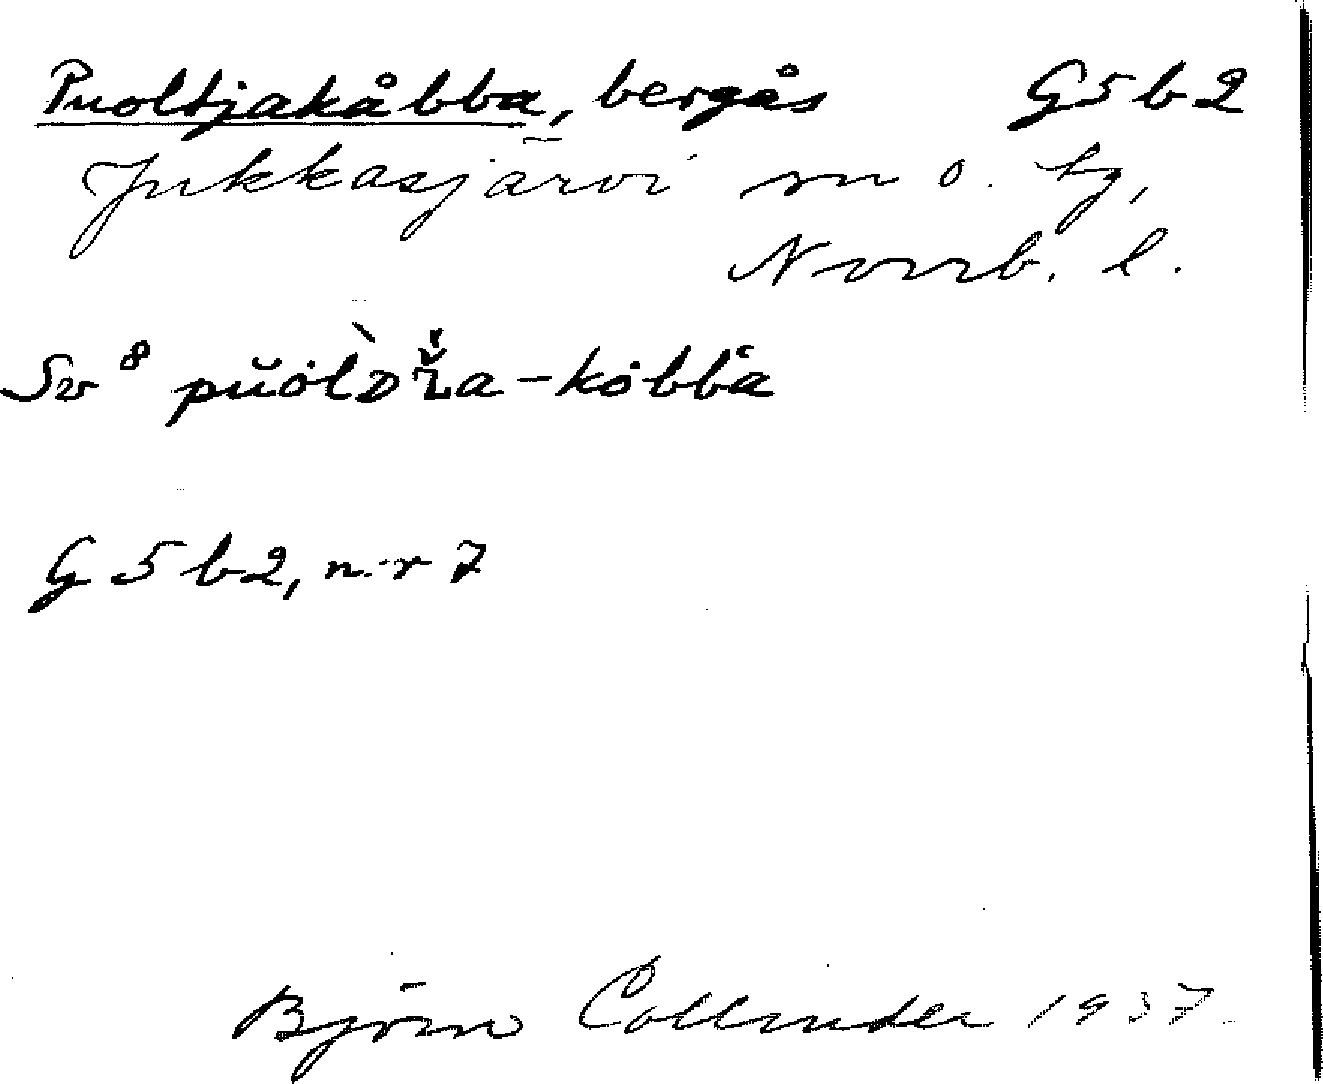 Puoltjakåbba, bergås G5b2
Jukkasjärvi sn o. tg,
Norrb. l.
Sv 8 pŭòlᴅ̀ž̌a-kȯbbȧ
G 5 b2, n:r 7
Björn Collinder 1937.